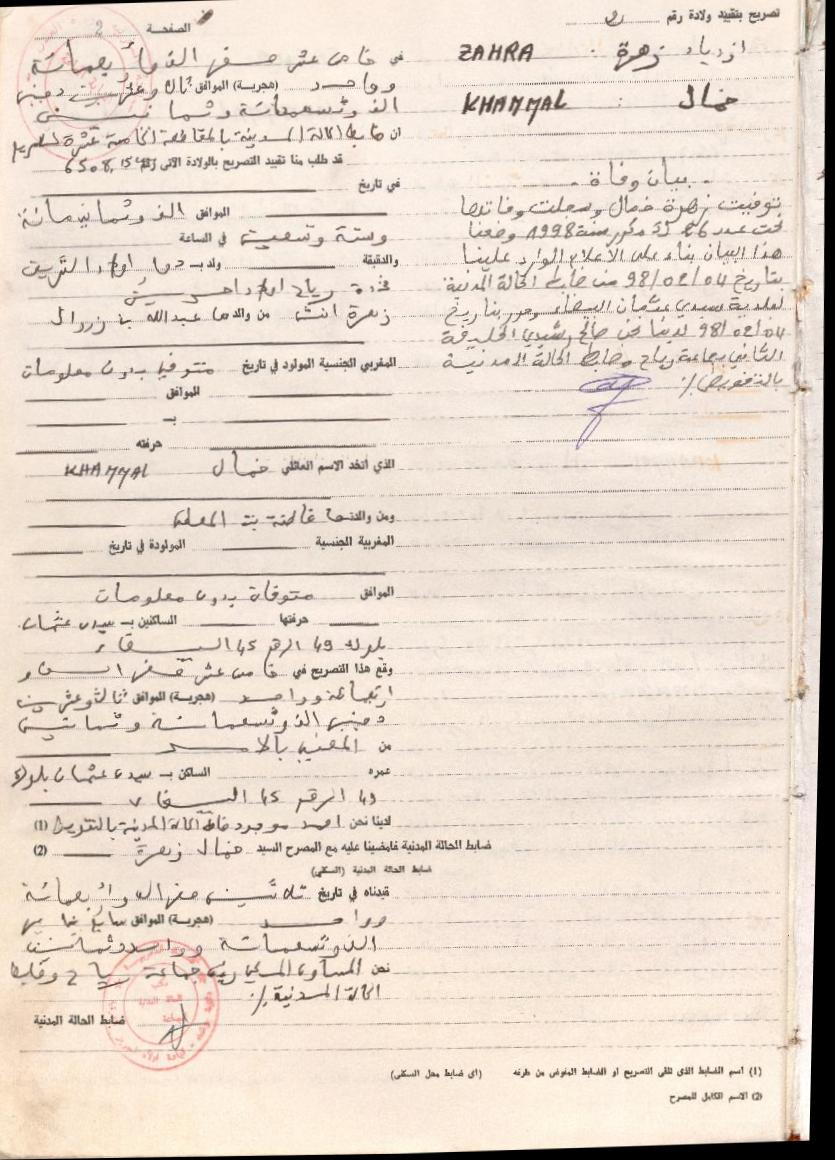 تصريح بتقييد ولادة رقم 2
الصفحة 2
ازدياد زهرة : ZAHRA
خمال : KHAMMAL
- بيان وفاة -
توفيت زهرة خمال وسجلت وفاتها
تحت عدد 26 سنة 1998 وضعنا
هذا البيان بناء على الاعلام الوارد علينا
بتاريخ 98/02/04 من ضابط الحالة المدنية
لبلدية سيدي عثمان البيضاء وحرر بتاريخ
98/02/04 لدينا نحن صالح رشيدي الخليفة
الثاني بجماعة رياح وضابط الحالة المدنية
بالتفويض ./.
في خامس عشر صفر الف واربعمائة
وواحد (هجرية) الموافق ثالث وعشرين دجنبر
الف وتسعمائة وثمانين
ان ضابط الحالة المدنية بالمقاطعة الخامسة عشرة
قد طلب منا تقييد التصريح بالولادة الآتى رقم 6508
في تاريخ
الموافق الف وثمانمائة
وستة وتسعين في الساعة
والدقيقة ولد بـ دوار اولاد الشريف
فخدة رياح اولاد احريش
زهرة أنثى من والدها عبدالله بن زروال
المغربي الجنسية المولود في تاريخ متوفي بدون معلومات
الموافق
بـ
حرفته
الذي أتخذ الاسم العائلي خمال KHAMMAL
ومن والدتها فاطنة بنت المعطي
المغربية الجنسية المولودة في تاريخ
الموافق متوفاة بدون معلومات
حرفتها الساكنين بـ سيدي عثمان
بلوك 49 الرقم 45 البيضاء
وقع هذا التصريح في خامس عشر صفر الف و
اربعمائة وواحد (هجرية) الموافق ثالث وعشرين
دجنبر الف وتسعمائة وثمانين
من المعني بالامر
عمره الساكن بـ سيدي عثمان بلوك
49 الرقم 45 البيضاء
لدينا نحن احمد موجود ضابط الحالة المدنية بالتفويض (1)
ضابط الحالة المدنية فامضينا عليه مع المصرح السيد خمال زهرة (2)
ضابط الحالة المدنية (السكلى)
قيدناه في تاريخ ثلاثين صفر الف واربعمائة
وواحد (هجرية) الموافق سابع يناير
الف وتسعمائة وواحد وثمانين
نحن رئيس جماعة رياح وضابط
الحالة المدنية ./.
ضابط الحالة المدنية
(1) اسم الضابط الذى تلقى التصريح او الضابط المفوض من طرفه (أى ضابط محل السكنى)
(2) الاسم الكامل للمصرح